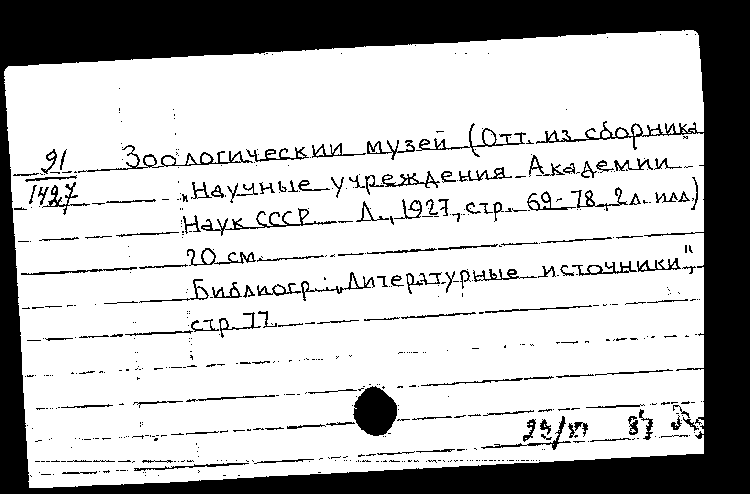 91
1427
Зоологический музей (Отт. из сборника
„Научные учреждения Академии
Наук СССР Л., 1927, стр. 69-78, 2 л. илл)
20 см.
Библиогр.: „Литературные источники",
стр. 77.
87